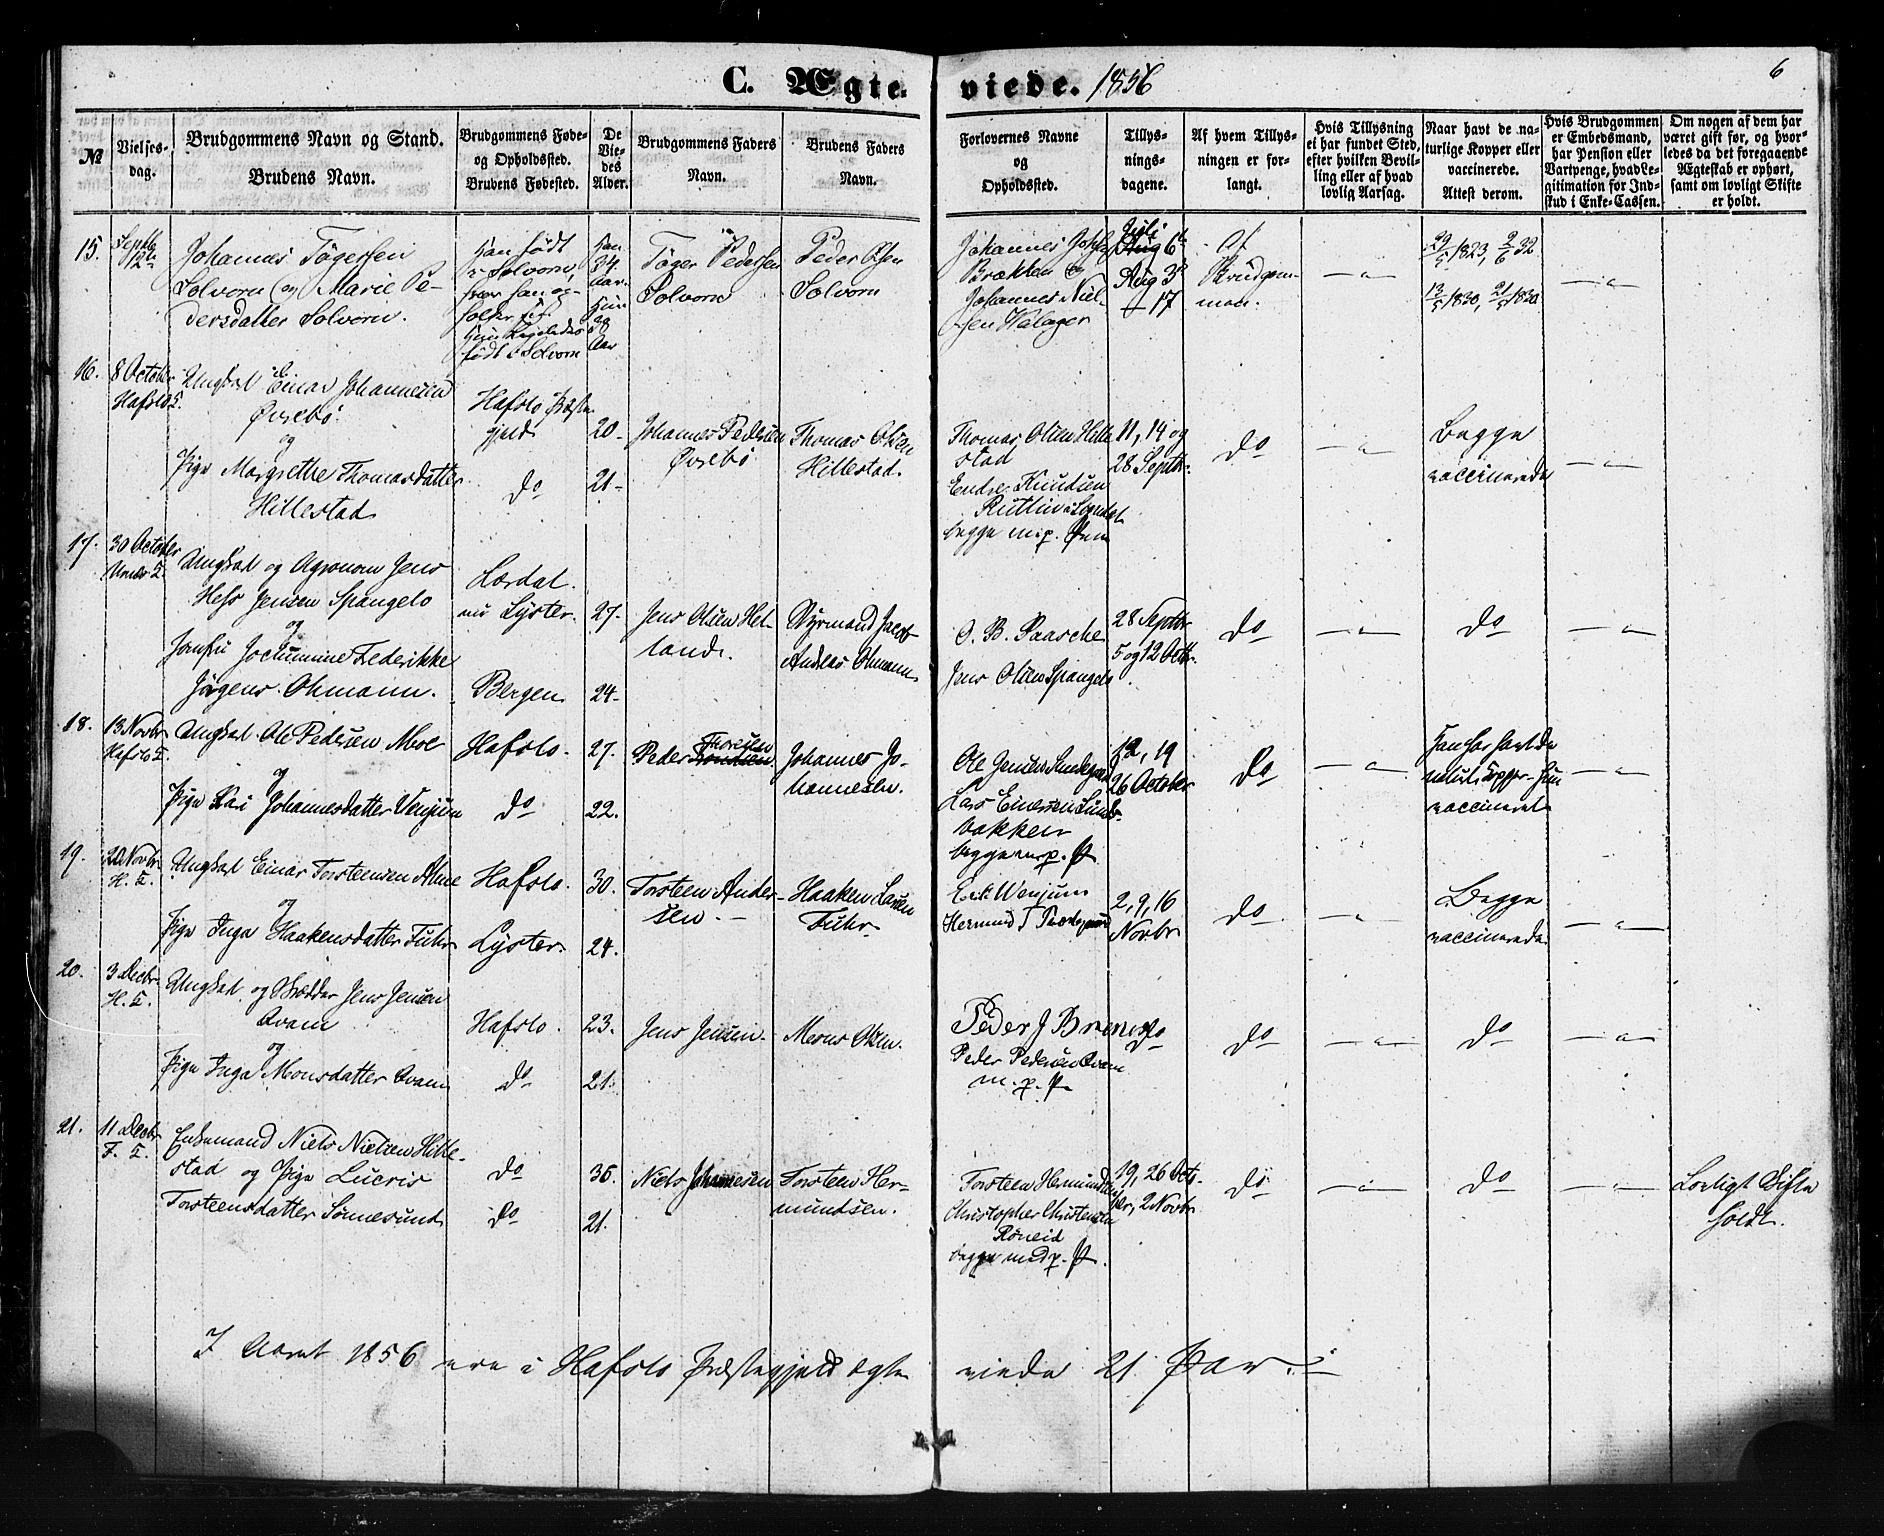 C. Ægte-
viede. 1856
6
№
Vielses-
dag.
Brudgommens Navn og Stand.
Brudens Navn.
Brudgommens Føde-
og Opholdssted.
Brudens Fødested.
De
Vie-
des
Alder.
Brudgommens Faders
Navn.
Brudens Faders
Navn.
Forlovernes Navne
og
Opholdssted.
Tillys-
nings-
dagene.
Af hvem Tillys-
ningen er for-
langt.
Hvis Tillysning
ei har fundet Sted,
efter hvilken Bevil-
ling eller af hvad
lovlig Aarsag.
Naar havt de na-
turlige Kopper eller
vaccinerede.
Attest derom.
Hvis Brudgommen
er Embedsmand,
har Pension eller
Vartpenge, hvad Le-
gitimation for Ind-
skud i Enke-Cassen.
Om nogen af dem har
været gift før, og hvor-
ledes da det foregaaende
Ægteskab er ophørt,
samt om lovligt Skifte
er holdt.
15.
Septb
12te
Johannes Tøgersen
Solvorn og Marie Pe-
dersdatter Solvorn.
Han født
i Solvorn,
hvor han op-
holder sig.
Hun ligeledes
født i Solvorn
Han
34
Aar
Hun
Aar
Tøger Pedersen
Solvorn
Peder Olsen
Solvorn
Johannes
Brækken og
Johannes Niel-
sen Halager
Juli
Aug 6te
Aug 3die
17
Af
Brudgom-
men.
29/5 1823, 2/6 32
13/5 1830, 21/5 1830
16.
8 October
Hafslo K.
Ungkarl Einar Johannesen
Øvrebø
og
Pige Margrethe Thomasdatter
Hillestad
Hafslo Præste
gjeld
do
20
21
Johannes Pedersen
Øvrebø
Thomas Olsen
Hillestad.
Thomas Olsen Hille
stad
Endre Knudsen
Ruttlin i Sogndal
begge m. p. Pen
11, 14 og
28 Septbr.
do
Begge
vaccinerede
17.
30 October
Urnes K.
Ungkarl og Agronom Jens
Hess Jensen Spangelo
og
Jomfru Jochumine Frederikke
Jørgens. Ohmann.
Lærdal.
nu Lyster.
Bergen
27
24
Jens Olsen Hel-
lande.
Styrmand Jacob
Andreas Ohmann
O. B. Paasche
Jens Olsen Spangelo
28 Septbr
5 og 12 Octbr.
do
do
18.
13 Novbr
Hafslo K.
Ungkarl Ole Pedersen Moe
og
Pige Kari Johannesdatter Venjum
Hafslo.
do
27.
22.
Peder Thoresen
Johannes Jo-
hannesen.
Ole Jensen
Lars Einersen Lunds-
bakken
begge m. p. P.
12, 19
26 October
do
Han har havt de
naturl. Kopper. Hun
vaccineret
19.
20 Novbr
H. K.
Ungkarl Einar Torsteensen Alme
og
Pige Inga Haakensdatter Fuhr
Hafslo.
Lyster.
30.
24.
Torsteen Ander-
sen.
Haaken Larsen
Fuhr
Erik Wenjum
Hermund T
2, 9, 16
Novbr
do
Begge
vaccinerede
20.
3 Decbr.
H. K.
Ungkarl og Skrædder Jens Jensen
Qvam
og
Pige Inga Monsdatter Qvam
Hafslo.
do
23.
21.
Jens Jensen
Mons Olsen.
Peder J
Peder Pedersen Qvam
m. p. P.
do
do
do
21.
11 Decbr
F. K.
Enkemand Niels Nielsen Hille-
stad og Pige Lucris
Torsteensdatter Sønnesund
do
do
36.
21.
Niels Johannesen
Torsteen Her-
mundsen.
Torsteen Hermundsen
Christopher Christensen
Røneid
begge med p. P.
19, 26 Octo-
ber, 2 Novbr.
do
do
Lovligt Skifte
holdt.
I Aaret 1856 ere i Hafslo Præstegjeld ægte
viede 21 Par.